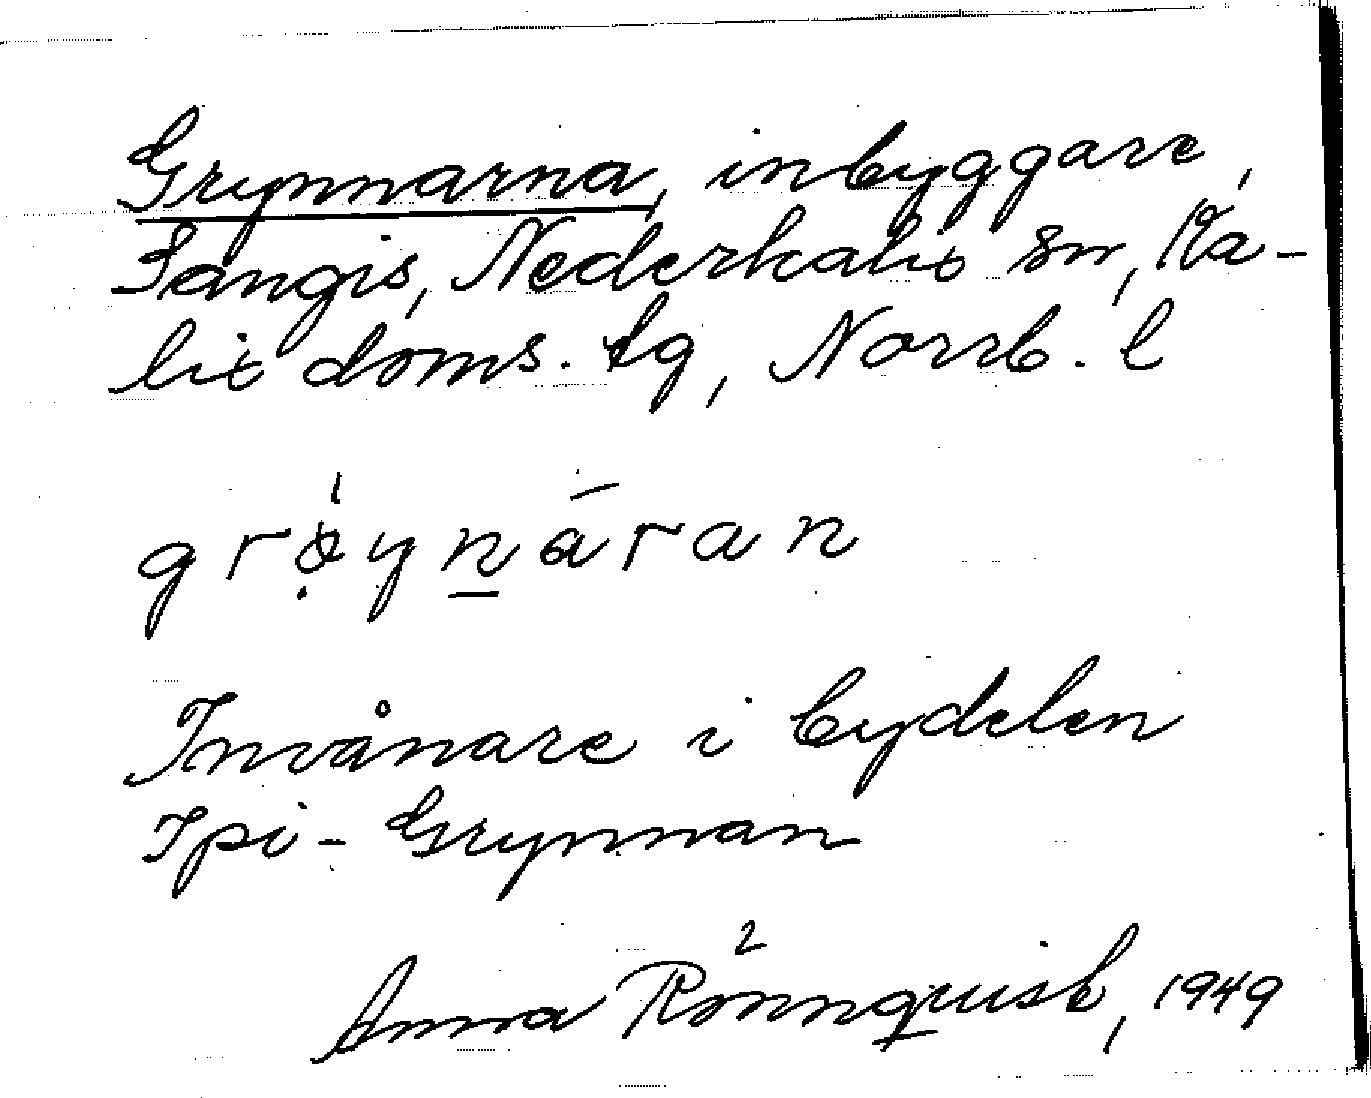 Grynnarna, inbyggare,
Sangis, Nederkalix sn, Ka-
lix doms. tg, Norrb. l
grø̣ynáran
Invånare i bydelen
Ipi-Grynnan
Anna Rönnquist, 1949